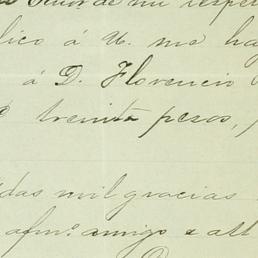 Señor de mi respe
lico á U. me ha
á D. Florencio
treinta pesos,
das mil gracias
afmo. amigo e att